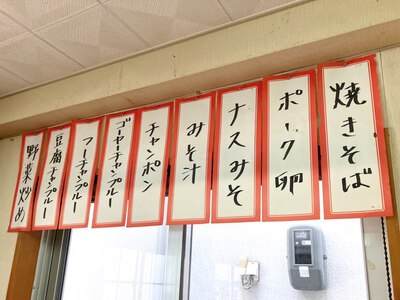 焼きそば
ポーク卵
ナスみそ
みそ汁
チャンポン
ゴーヤーチャンプルー
フーチャンプルー
豆腐チャンプルー
野菜炒め